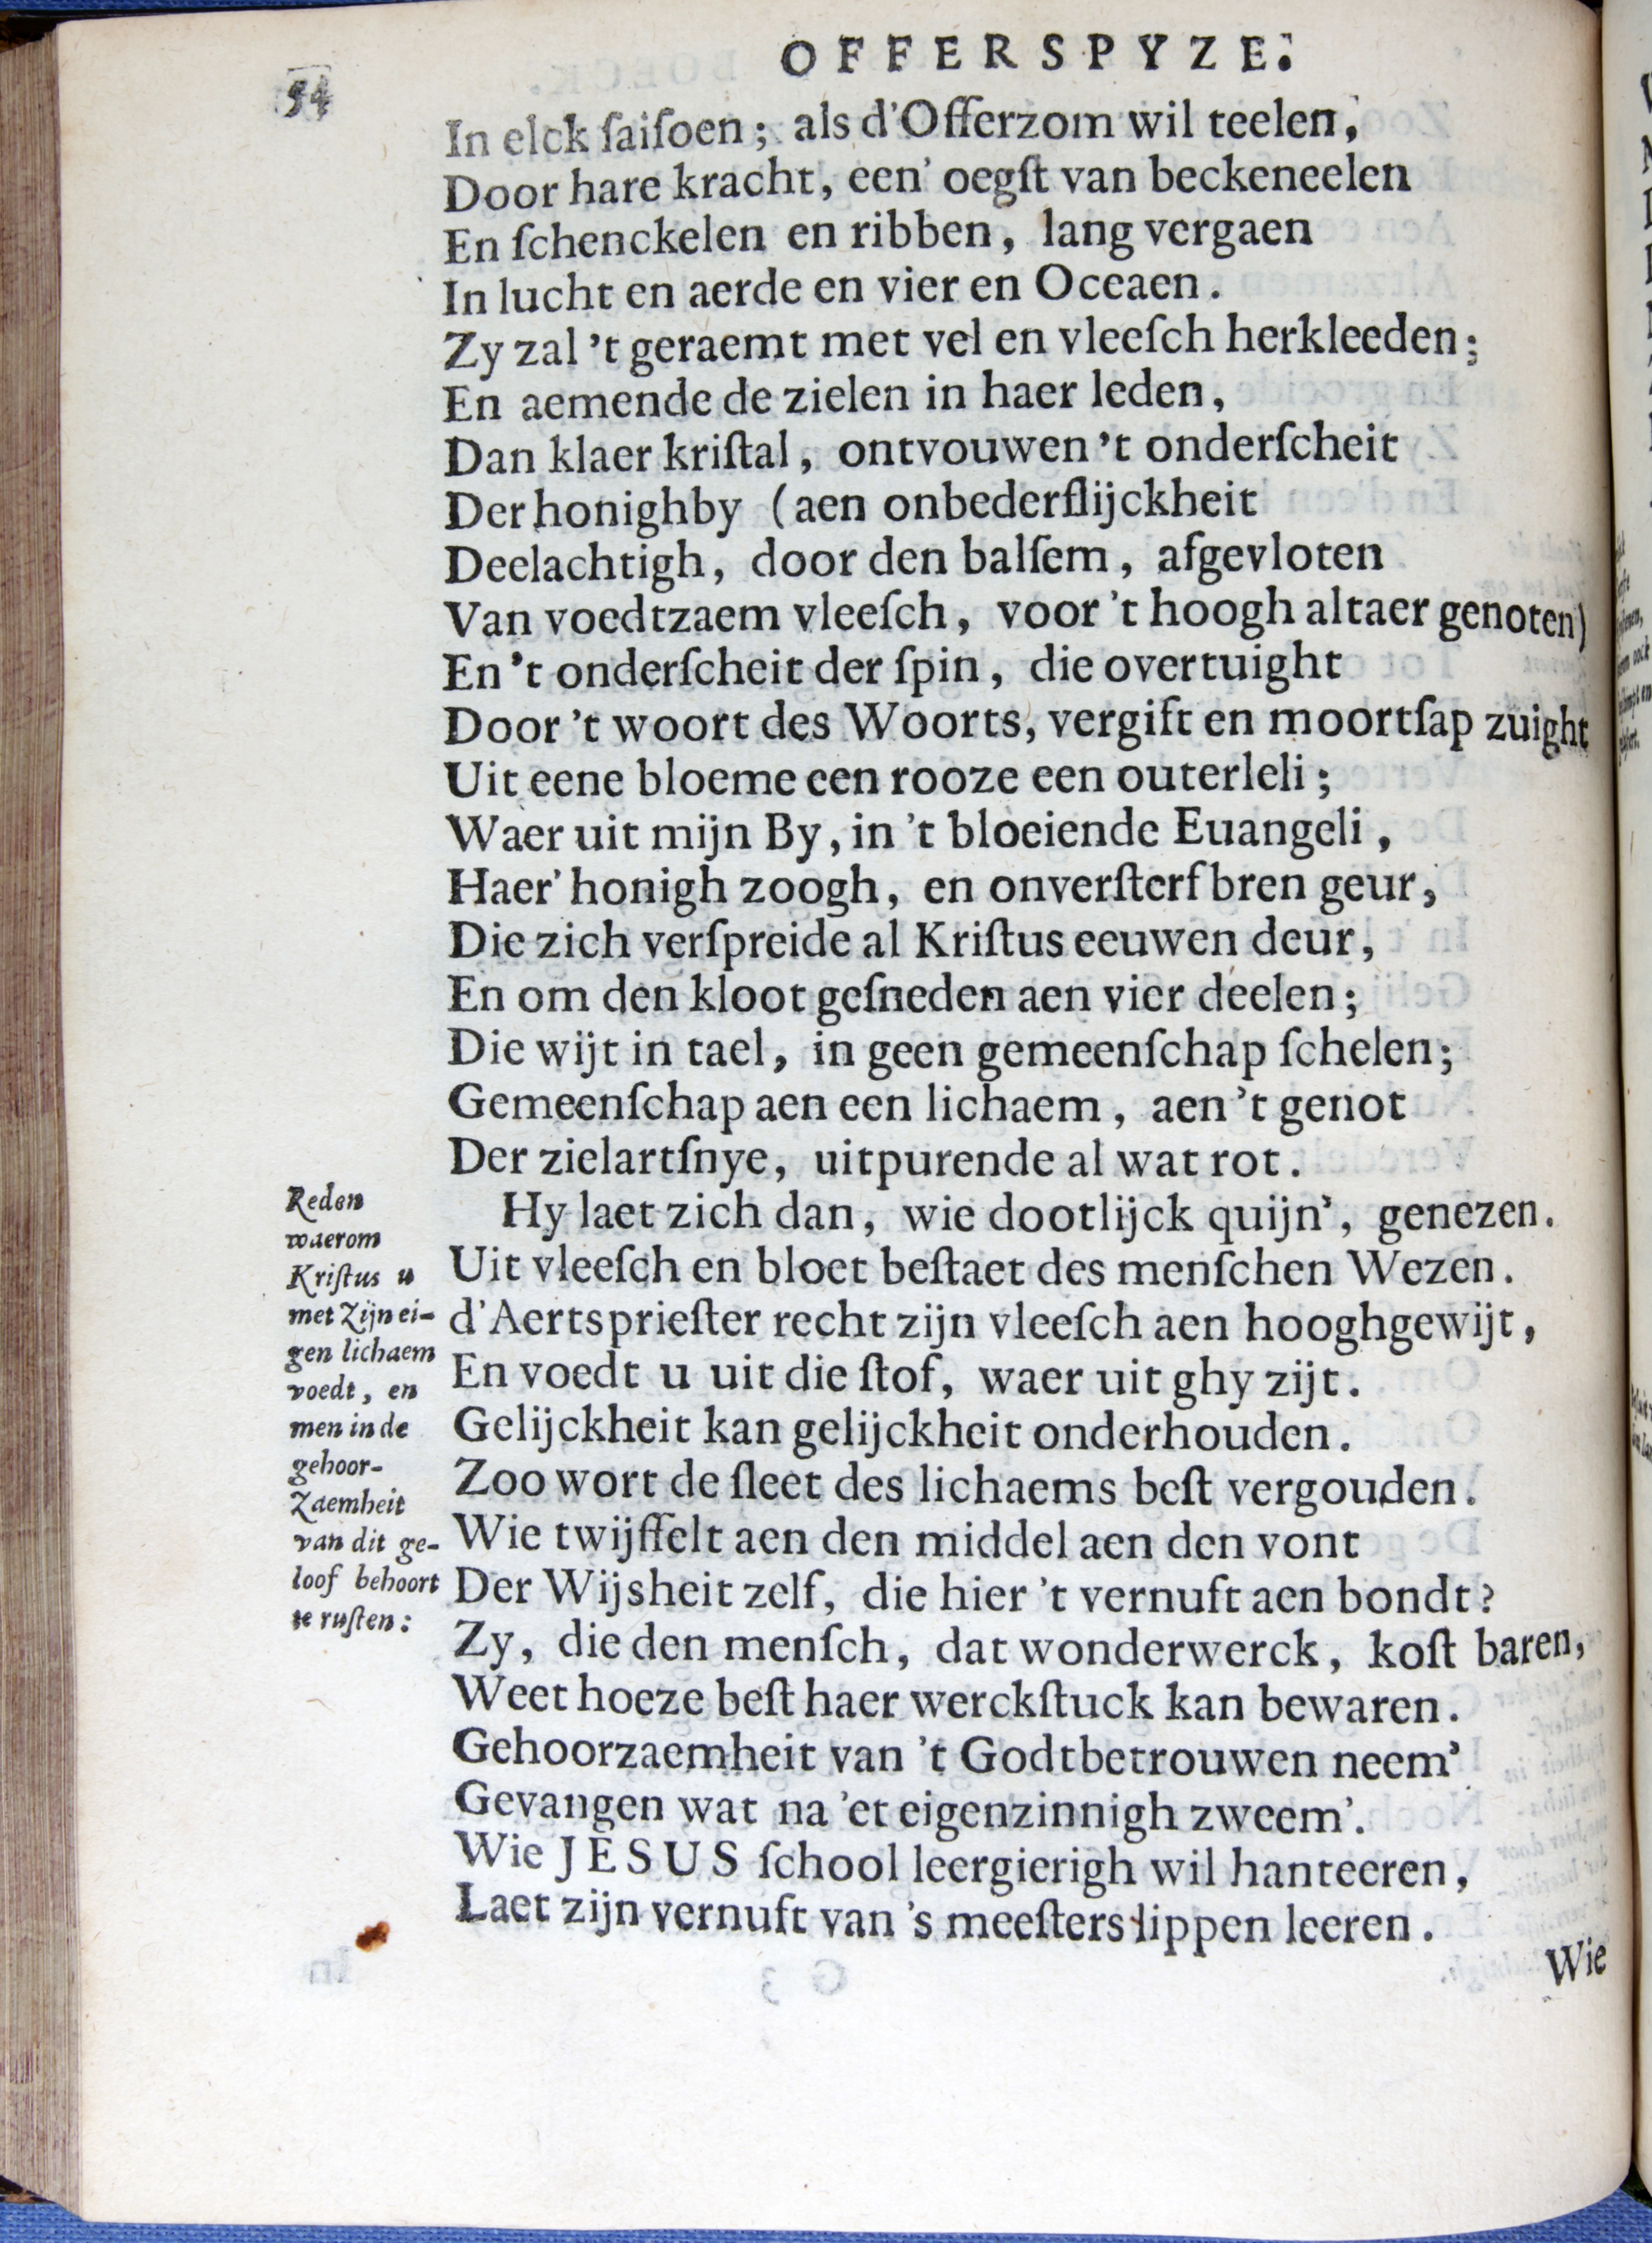 OFFERSPYZE.
54
In elck ſaiſoen; als d'Offerzom wil teelen,
Door hare kracht, een' oegſt van beckeneelen
En ſchenckelen en ribben, lang vergaen
In lucht en aerde en vier en Oceaen.
Zy zal 't geraemt met vel en vleeſch herkleeden;
En aemende de zielen in haer leden,
Dan klaer kriſtal, ontvouwen 't onderſcheit
Der honighby (aen onbederflijckheit
Deelachtigh, door den balſem, afgevloten
Van voedtzaem vleeſch, voor 't hoogh altaer genoten)
En 't onderſcheit der ſpin, die overtuight
Door 't woort des Woorts, vergift en moortſap zuight
Uit eene bloeme een rooze een outerleli;
Waer uit mijn By, in 't bloeiende Euangeli,
Haer' honigh zoogh, en onverſterfbren geur,
Die zich verſpreide al Kriſtus eeuwen deur,
En om den kloot geſneden aen vier deelen;
Die wijt in tael, in geen gemeenſchap ſchelen;
Gemeenſchap aen een lichaem, aen 't genot
Der zielartſnye, uitpurende al wat rot.
Hy laet zich dan, wie dootlijck quijn', genezen.
Uit vleeſch en bloet beſtaet des menſchen Wezen.
d'Aertsprieſter recht zijn vleeſch aen hooghgewijt,
En voedt u uit die ſtof, waer uit ghy zijt.
Gelijckheit kan gelijckheit onderhouden.
Zoo wort de ſleet des lichaems beſt vergouden.
Wie twijffelt aen den middel aen den vont
Der Wijsheit zelf, die hier 't vernuft aen bondt?
Zy, die den menſch, dat wonderwerck, koſt baren,
Weet hoeze beſt haer werckſtuck kan bewaren.
Gehoorzaemheit van 't Godtbetrouwen neem'
Gevangen wat na 'et eigenzinnigh zweem'.
Wie JESUS ſchool leergierigh wil hanteeren,
Laet zijn vernuft van 's meeſters lippen leeren.
Wie
Reden
waerom
Kriſtus u
met Zijn ei-
gen lichaem
voedt, en
men in de
gehoor-
Zaemheit
van dit ge-
loof behoort
te ruſten: